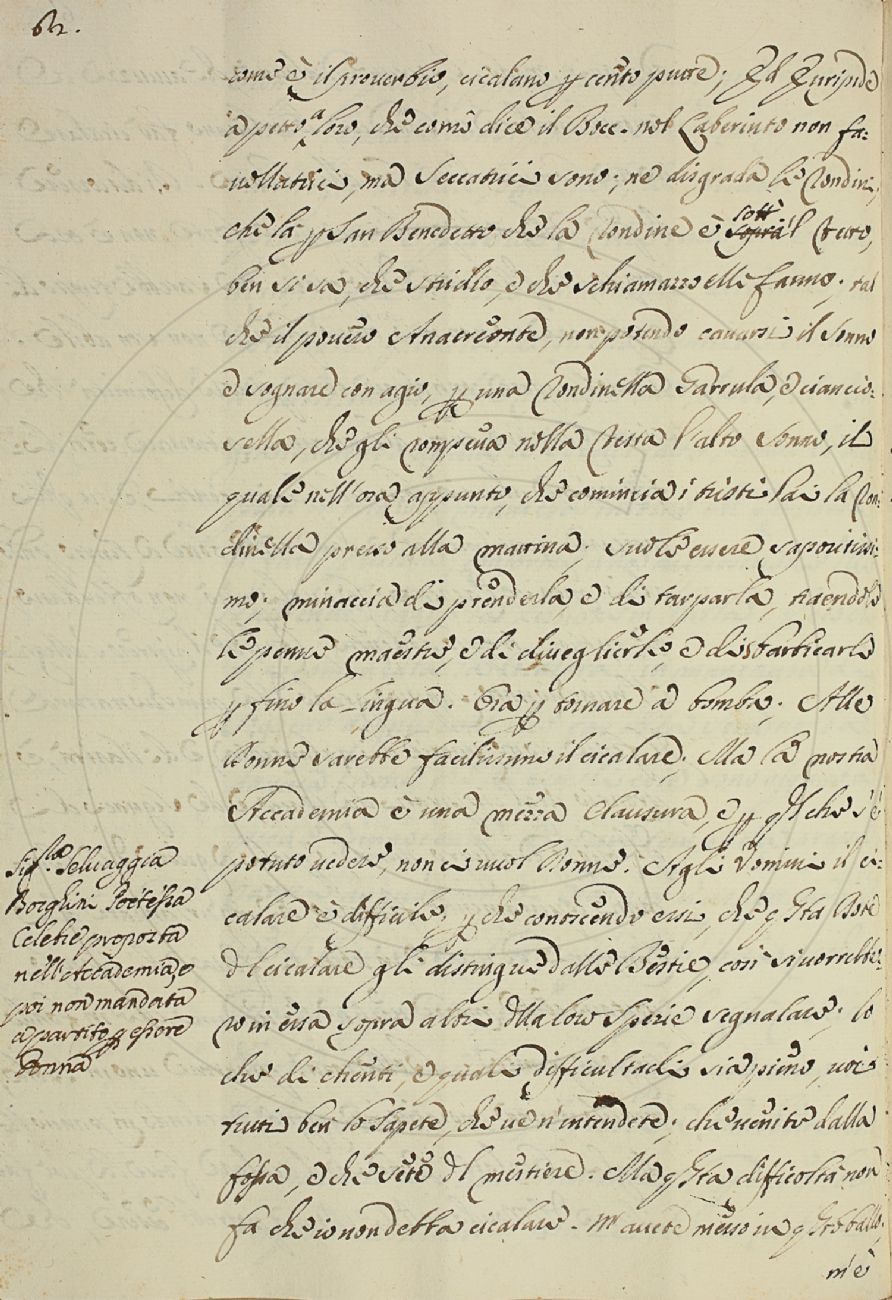 62.
come è il proverbio, cicalano p cento putte; Ed Euripide
a petto a loro, che come dice il Bocc. nel Laberinto non fa-
vellatrici, ma Seccatrici sono; ne disgrada le rondini,
che la p San Benedetto che la rondine è sopra sott'l tetto,
ben si sa, che stridio, e che schiamazzo elle fanno; tal
che il povero Anacreonte, non potendo cavarsi il sonno
e sognare con agio, p una rondinella garrula, e ciancio-
sella, che gli rompeva nella testa l'alto sonno, il
quale nell'ora appunto, che comincia i tristi lai la ron-
dinella presso alla mattina; suole essere saporitissi-
mo; minaccia di prenderla, e di tarparla, traendole
le penne maestre, e di diveglierle, e disbarbicarle
p fino la Lingua. Ora p tornare a bomba; Alle
Donne sarebbe facilissimo il cicalare; Ma la nostra
Accademia è una mezza Clausura, e p qdl che s'è
potuto vedere, non ci vuol Donne. Agli Uomini il ci-
calare è difficile; p che conoscendo essi, che qsta Dote
dl cicalare gli distingue dalle Bestie, così si vorrebbe-
ro in essa sopra altri dlla loro spezie segnalare; lo
che di chenti, e quali difficultadi sia pieno, voi
tutti ben lo sapete, che ve n'intendete; che venite dalla
fossa, e che sete dl mestiere. Ma qsta difficoltà non
fa che io non debba cicalare. M'avete messo in qsto ballo;
m'è
Sig.ra Selvaggia
Borghini Poetessa
Celebre proposta
nell'Accademia, e
poi non mandata
a partito p essere
Donna